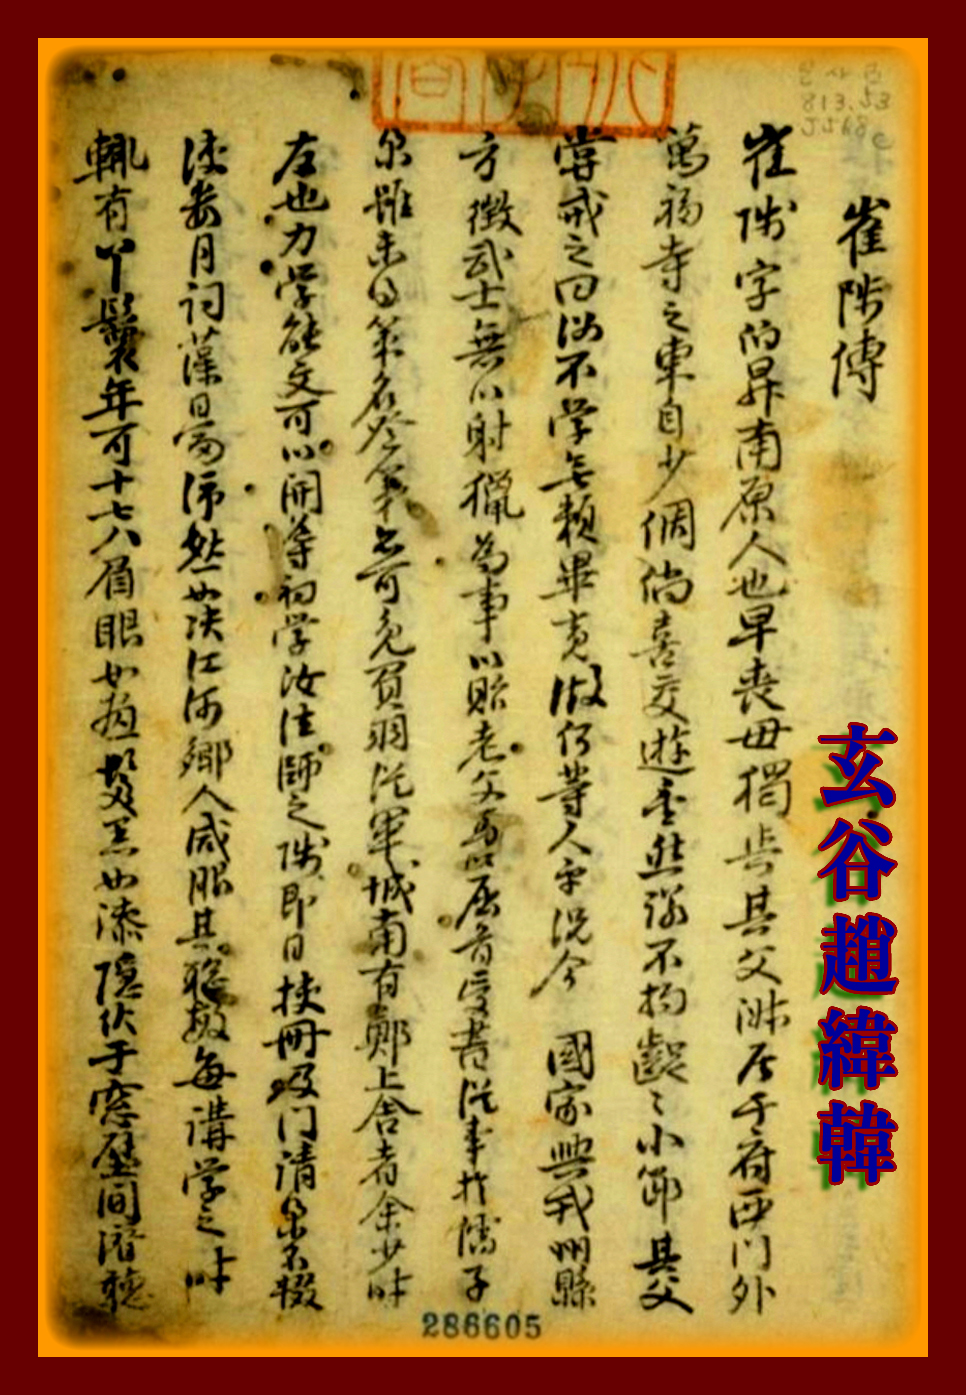 崔陟傳
崔陟字伯昇南原人也早喪母獨与其父淑居于府西门外
萬福寺之東自少倜倘喜交遊重然諾不拘齪〻小節其父
嘗戒之曰汝不学無頼畢竟做何等人乎況今 國家興戎州縣
方徵武士無以射獵為事以貽老父憂以屈首受書從事於儒子
業雖未得策名登第亦可免負羽從軍城南有鄭上舍者余少时
友也力学能文可以開導初学汝往師之陟即日挾冊及门請業不輟
浹数月詞藻日富沛然如决江河鄉人咸服其聡敏每講学之时
輒有丫鬟年可十七八眉眼如畫髮黑如漆隱伏于窓壁间潛聽
玄谷趙緯韓
286605
813.53